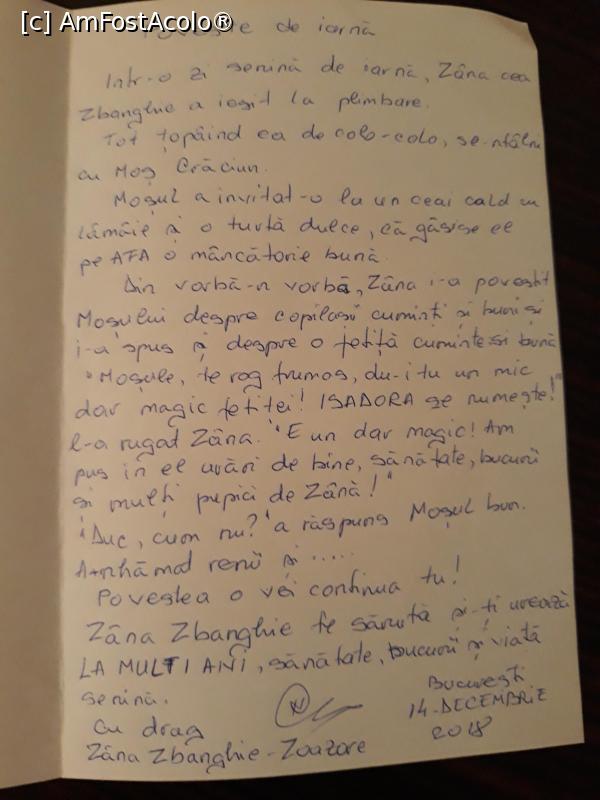 [c] AmFostAcolo®
Poveste de iarnă
Într-o zi senină de iarnă, Zâna cea
Zbanghie a ieșit la plimbare.
Tot țopăind ea de colo-colo, se-ntâlni
cu Moș Crăciun.
Moșul a invitat-o la un ceai cald cu
lămâie și o turtă dulce, că găsise el
pe AFA o mâncătorie bună.
Din vorbă-n vorbă, Zâna i-a povestit
Moșului despre copilași cuminți și buni și
i-a spus și despre o fetiță cuminte și bună
"Moșule, te rog frumos, du-i tu un mic
dar magic fetiței! ISADORA se numește!"
l-a rugat Zâna. "E un dar magic! Am
pus în el urări de bine, sănătate, bucurii
și mulți pupici de Zână!"
"Duc, cum nu?" a răspuns Moșul bun.
A-nhămat renii și .....
Povestea o vei continua tu!
Zâna Zbanghie te sărută și-ți urează
LA MULȚI ANI, sănătate, bucurii și viață
senină.
Cu drag
Zâna Zbanghie-Zoazore
București
14-DECEMBRIE
2018